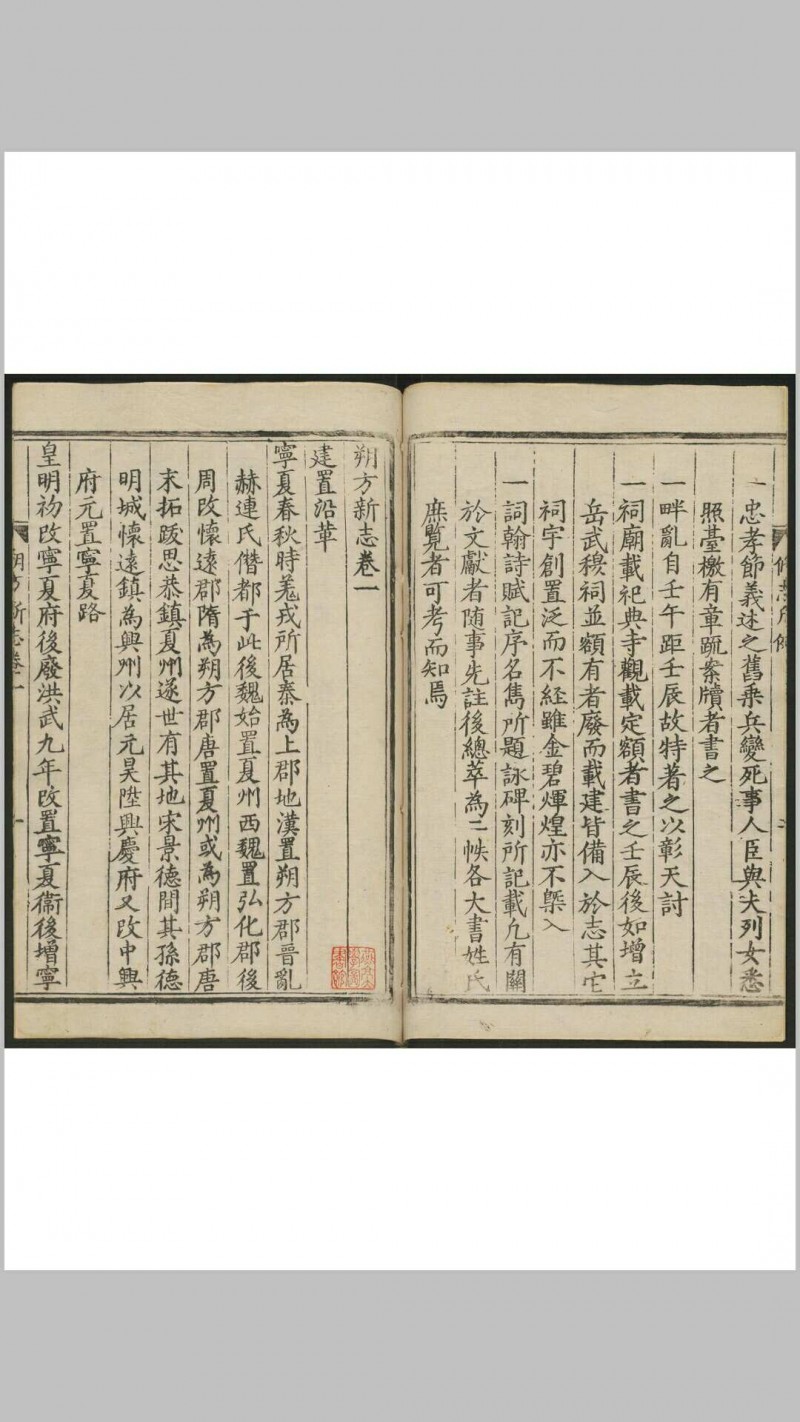 一忠孝節義述之舊乘兵變死事人臣與夫列女悉
照臺檄有章疏案牘者書之
一畔亂自壬午距壬辰故特著之以彰天討
一祠廟載祀典寺觀載定額者書之壬辰後如增立
岳武穆祠並額有者廢而載建皆備入於志其它
祠宇創置泛而不經雖金碧煇煌亦不槩入
一詞翰詩賦記序名雋所題詠碑刻所記載凢有關
於文獻者随事先註後總萃為二帙各大書姓氏
庶覽者可考而知焉
朔方新志卷一
建置沿革
寧夏春秋時羌戎所居秦為上郡地漢置朔方郡晉亂
赫連氏僭都于此後魏始置夏州西魏置弘化郡後
周改懷遠郡隋為朔方郡唐置夏州或為朔方郡唐
末拓跋思恭鎮夏州遂世有其地宋景德間其孫德
明城懷遠鎮為興州以居元昊陞興慶府又改中興
府元置寧夏路
皇明初改寧夏府後廢洪武九年改置寧夏衛後增寧
朔方新志卷一